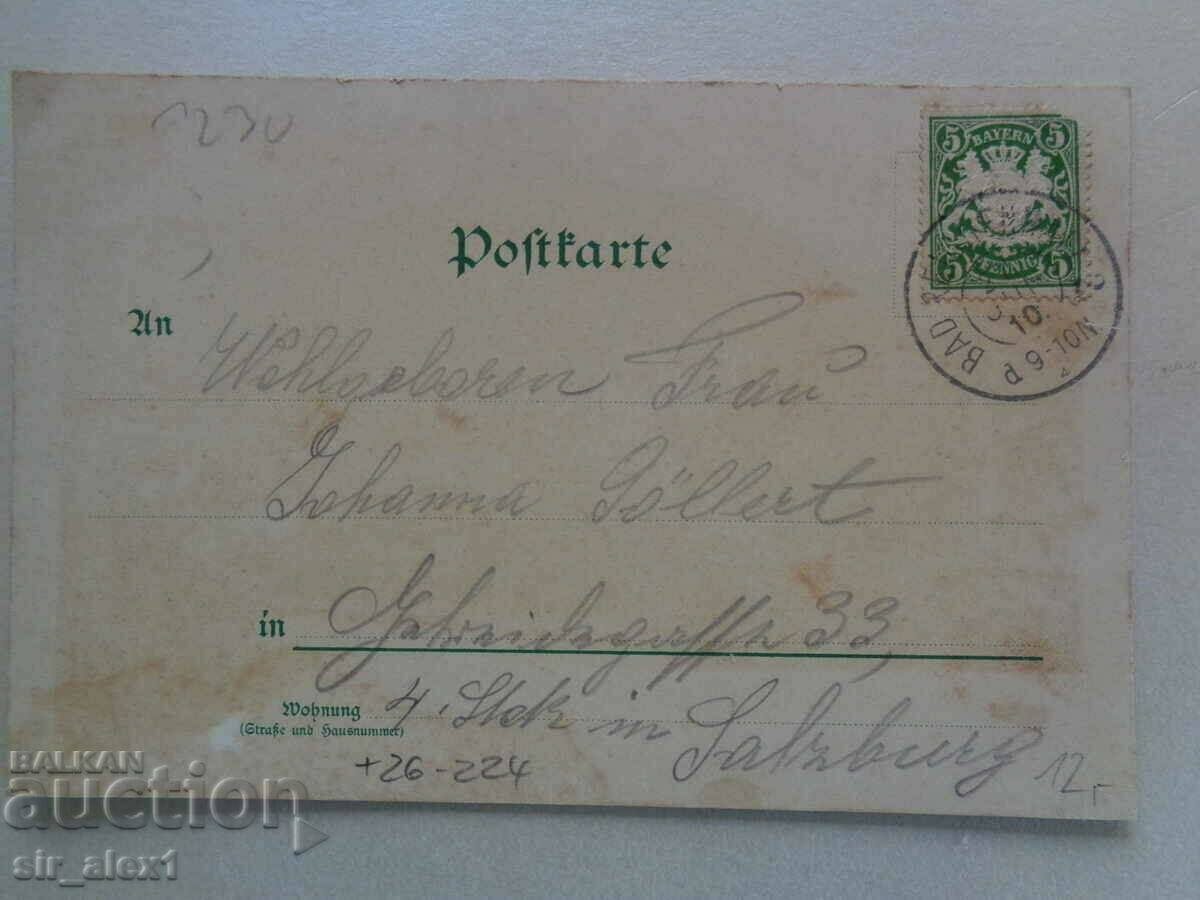 1230
5 BAYERN 5
5 PFENNIG 5
BAD
10.
P 9-10 N
Postkarte
An
Wohlgeboren Frau
Johanna Göllert
in Getreidegasse 33,
Wohnung 4. Stck in Salzburg
(Straße und Hausnummer)
+26-224
12,-
BALKAN
auction
sir_alex1